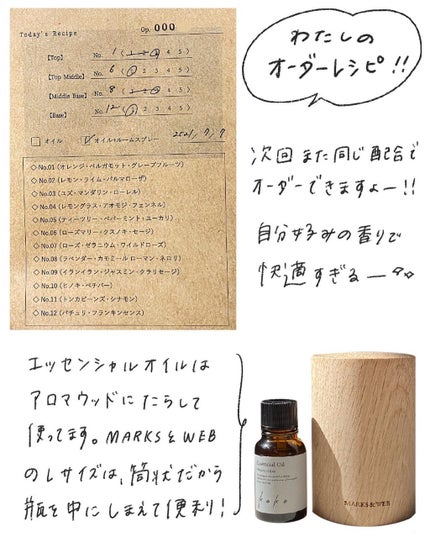 Today's Recipe Op. 000
【Top】 No. 1 (1 2 3 4 5)
【Top Middle】 No. 6 (1 2 3 4 5)
【Middle Base】 No. 8 (1 2 3 4 5)
【Base】 No. 12 (1 2 3 4 5)
オイル オイル+ルームスプレー 2021, 7, 7
◇No.01 (オレンジ・ベルガモット・グレープフルーツ)
◇No.02 (レモン・ライム・パルマローザ)
◇No.03 (ユズ・マンダリン・ローレル)
◇No.04 (レモングラス・アオモジ・フェンネル)
◇No.05 (ティーツリー・ペパーミント・ユーカリ)
◇No.06 (ローズマリー・クスノキ・セージ)
◇No.07 (ローズ・ゼラニウム・ワイルドローズ)
◇No.08 (ラベンダー・カモミールローマン・ネロリ)
◇No.09 (イランイラン・ジャスミン・クラリセージ)
◇No.10 (ヒノキ・ペチバー)
◇No.11 (トンカビーンズ・シナモン)
◇No.12 (パチュリ・フランキンセンス)
わたしの
オーダーレシピ!!
次回また同じ配合で
オーダーできますよー!!
自分好みの香りで
快適すぎるー
エッセンシャルオイルは
アロマウッドにたらして
使ってます。MARKS&WEB
のLサイズは、筒状だから
瓶を中にしまえて便利!
Essential Oil
MARKS&WEB